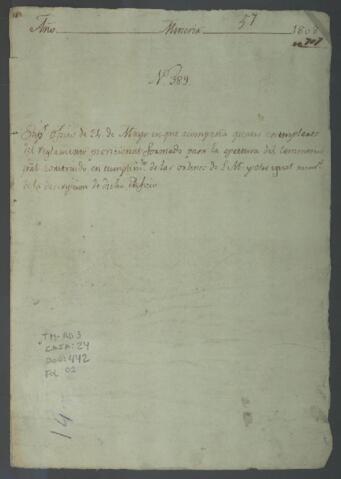 57
Año Mineria 1808
nº 707
Nº 389.
Supr. Oficio de 24 de Mayo en que acompaña quatro exemplares
del Reglamento provicional formado para la apertura del Cementerio
gral construido en cumplimto de las ordenes de S.M. y otro igual numo
de la descripcion de dicho Edificio
TM-AD3
CAJA: 24
DOC: 442
FOL 02
14